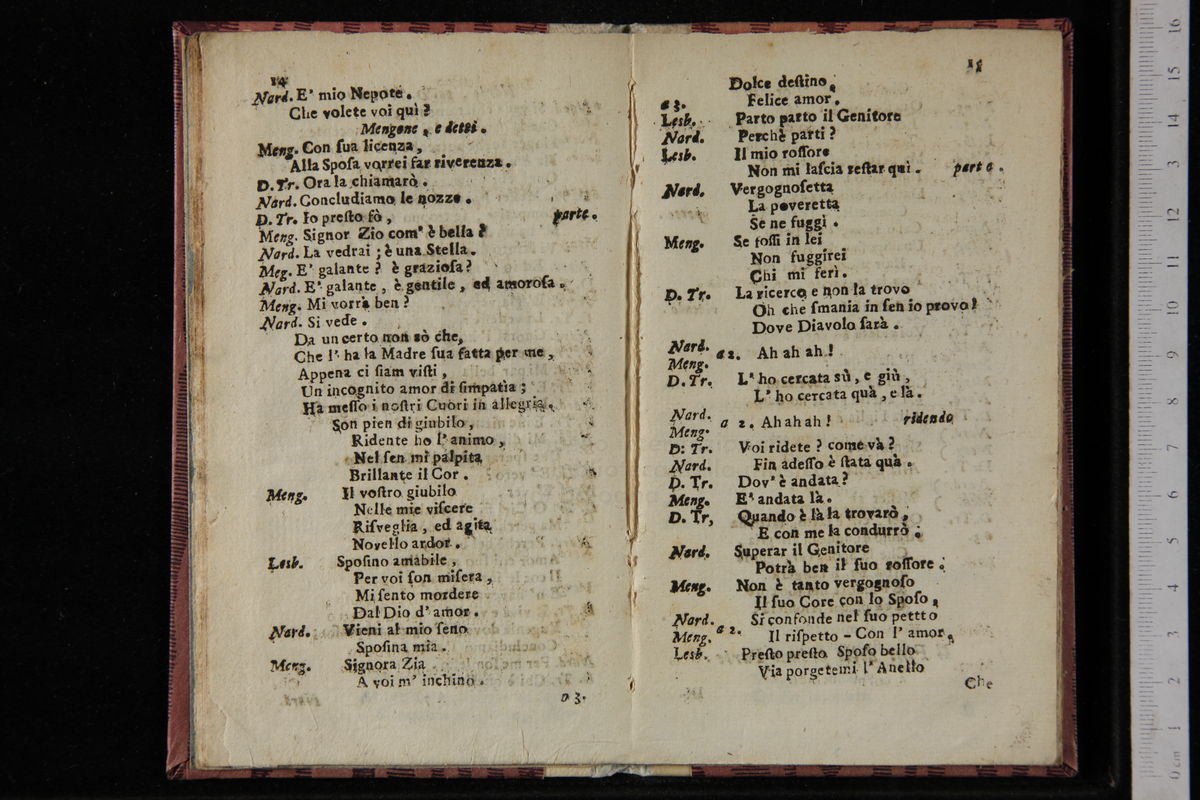 14
Nard. E' mio Nepote.
Che volete voi quì?
Mengone, e detti.
Meng. Con ſua licenza,
Alla Spoſa vorrei far riverenza.
D. Tr. Ora la chiamarò.
Nard. Concludiamo le nozze.
D. Tr. Io preſto fò, parte.
Meng. Signor Zio com' è bella?
Nard. La vedrai; è una Stella.
Meg. E' galante? è grazioſa?
Nard. E' galante, è gentile, ed amoroſa.
Meng. Mi vorrà ben?
Nard. Si vede.
Da un certo non sò che,
Che l' ha la Madre ſua fatta per me,
Appena ci ſiam viſti,
Un incognito amor di ſimpatìa;
Ha meſſo i noſtri Cuori in allegria.
Son pien di giubilo,
Ridente ho l' animo,
Nel ſen mi palpita
Brillante il Cor.
Meng. Il voſtro giubilo
Nelle mie viſcere
Riſveglia, ed agita
Novello ardor.
Lesb. Spoſino amabile,
Per voi ſon miſera,
Mi ſento mordere
Dal Dio d' amor.
Nard. Vieni al mio ſeno
Spoſina mia.
Meng. Signora Zia
A voi m' inchino.
D 3.
15
Dolce deſtino,
a 3. Felice amor.
Lesb. Parto parto il Genitore
Nard. Perchè parti?
Lesb. Il mio roſſore
Non mi laſcia reſtar quì. parte.
Nard. Vergognoſetta
La poveretta
Se ne fuggì.
Meng. Se foſſi in lei
Non fuggirei
Chi mi ferì.
D. Tr. La ricerco e non la trovo
Oh che ſmania in ſen io provo!
Dove Diavolo ſarà.
Nard.
a 2. Ah ah ah!
Meng.
D. Tr. L' ho cercata sù, e giù,
L' ho cercata quà, e là.
Nard.
a 2. Ah ah ah! ridendo
Meng.
D: Tr. Voi ridete? come và?
Nard. Fin adeſſo è ſtata quà.
D. Tr. Dov' è andata?
Meng. E' andata là.
D. Tr, Quando è là la trovarò,
E con me la condurrò;
Nard. Superar il Genitore
Potrà ben il ſuo roſſore;
Meng. Non è tanto vergognoſo
Il ſuo Core con lo Spoſo,
Nard. Si confonde nel ſuo pettto
Meng. a 2. Il riſpetto - Con l' amor,
Lesb. Preſto preſto Spoſo bello
Via porgetemi l' Anello
Che